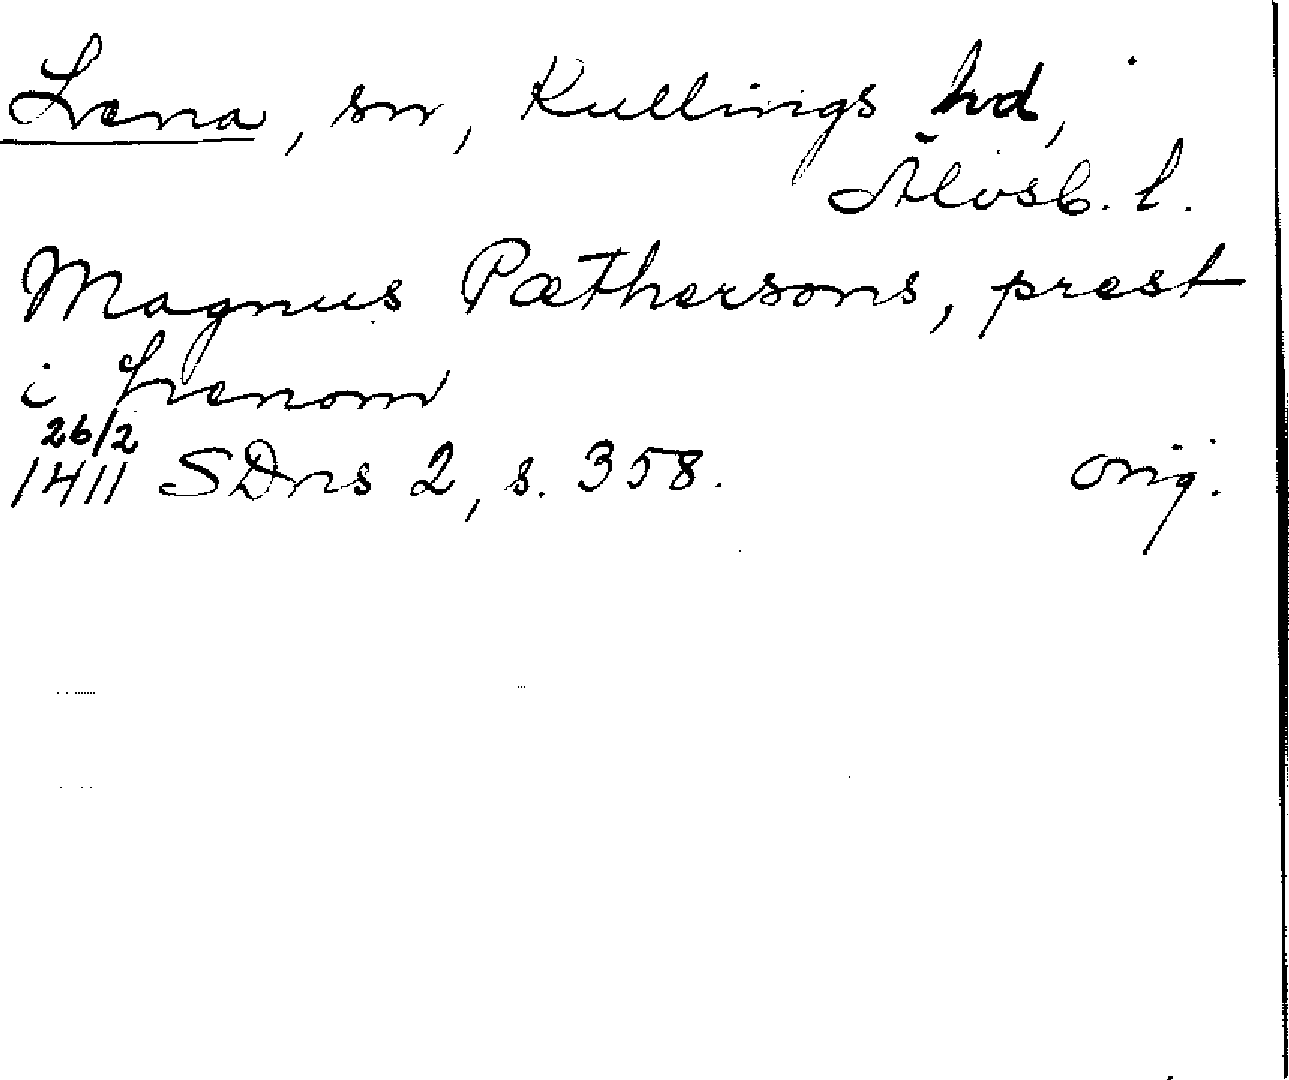 Lena, sn, Kullings hd,
Älvsb. l.
Magnus Pæthersons, prest
i Lenom
26/2
1411 SDns 2, s. 358. orig.